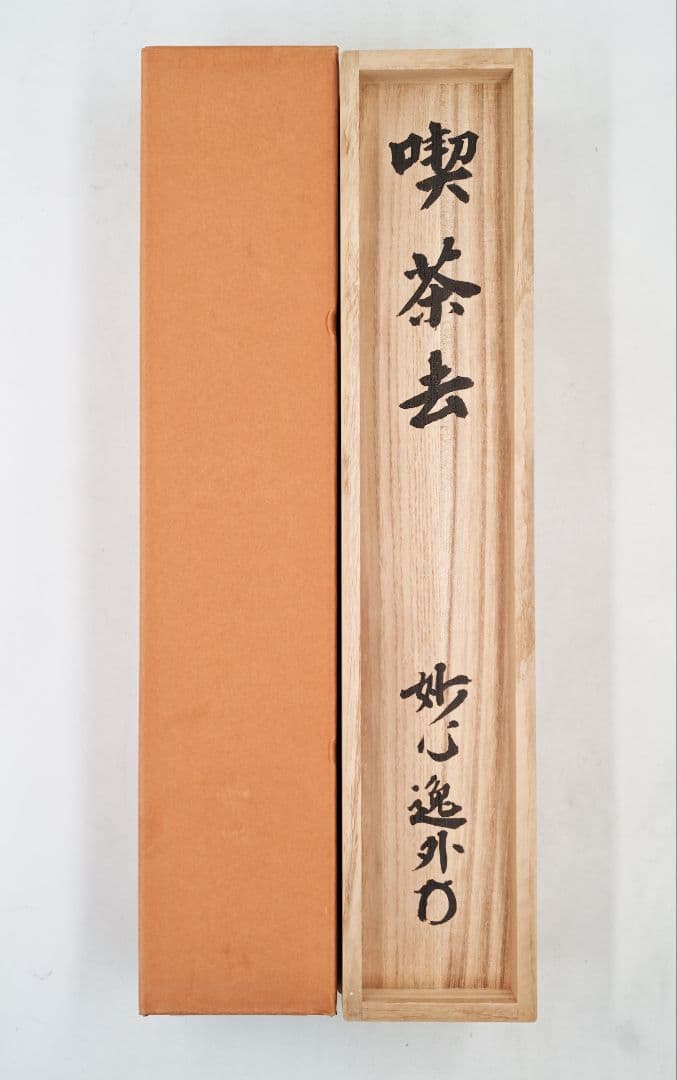 喫茶去
妙心逸外